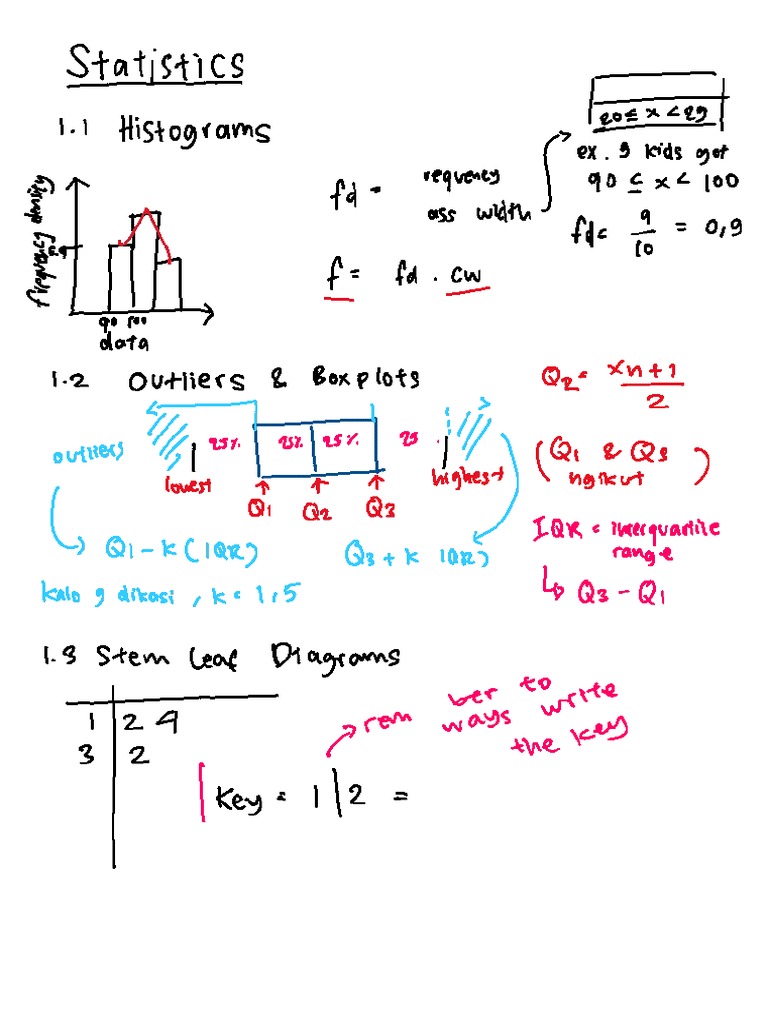 Statistics
1.1 Histograms
20 ≤ x < 29
ex. 9 kids get
90 ≤ x < 100
fd = 9/10 = 0,9
fd = requency
ass width
f = fd . cw
frequency density
90 100
data
1.2 Outliers & Boxplots
Q2 = xn+1
2
outliers
25% 25% 25% 25
lowest
highest
Q1 Q2 Q3
(Q1 & Q3
ngikut)
Q1 - k (IQR)
Q3 + k IQR)
IQR = interquartile
range
↳ Q3 - Q1
kalo g dikasi, k = 1,5
1.3 Stem Leaf Diagrams
1 | 2 4
3 | 2
rem ber to
ways write
the key
Key = 1 | 2 =